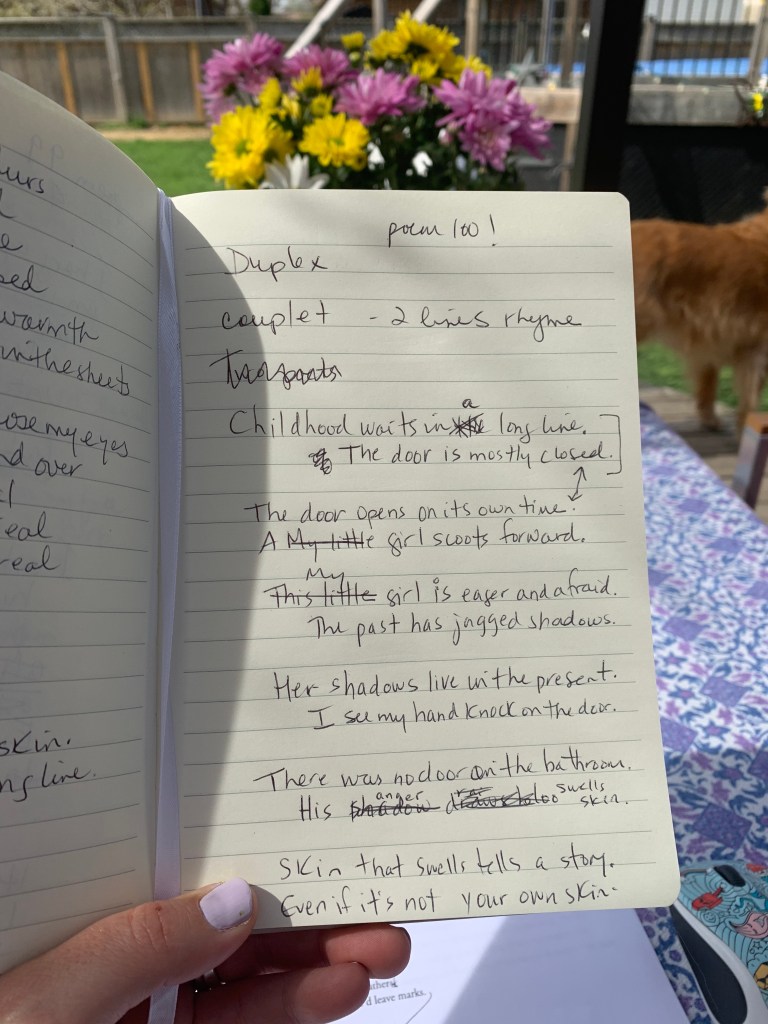 urs
e
sed
warmth
in the sheets
ose my eyes
nd over
eal
real
skin.
ng line.
poem 100!
Duplex
couplet - 2 lines rhyme
Childhood waits in a long line.
The door is mostly closed.
The door opens on its own time.
A My little girl scoots forward.
My
This little girl is eager and afraid.
The past has jagged shadows.
Her shadows live in the present.
I see my hand knock on the door.
There was no door on the bathroom.
anger swells
His shadow skin.
Skin that swells tells a story.
Even if it's not your own skin.
d leave marks.